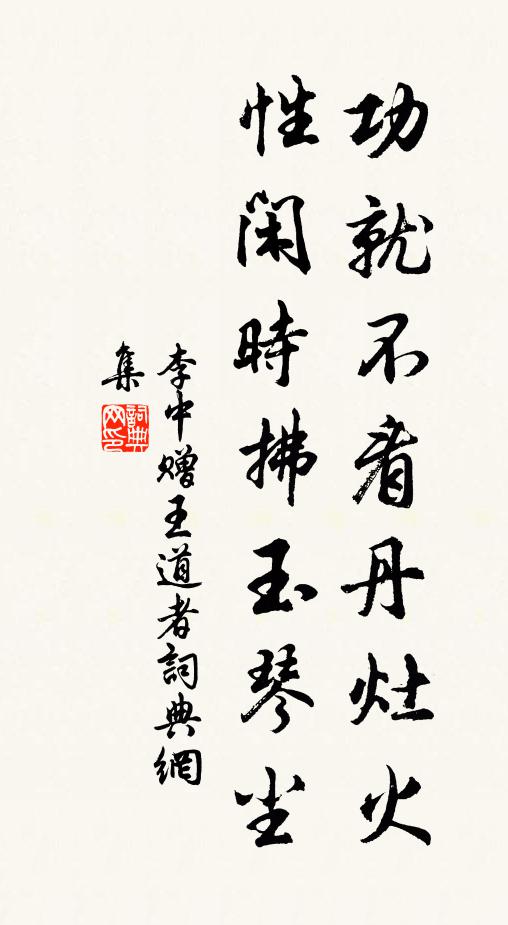 功就不看丹灶火
性闲時拂玉琴尘
李中赠王道者詞典網
集
詞典网印